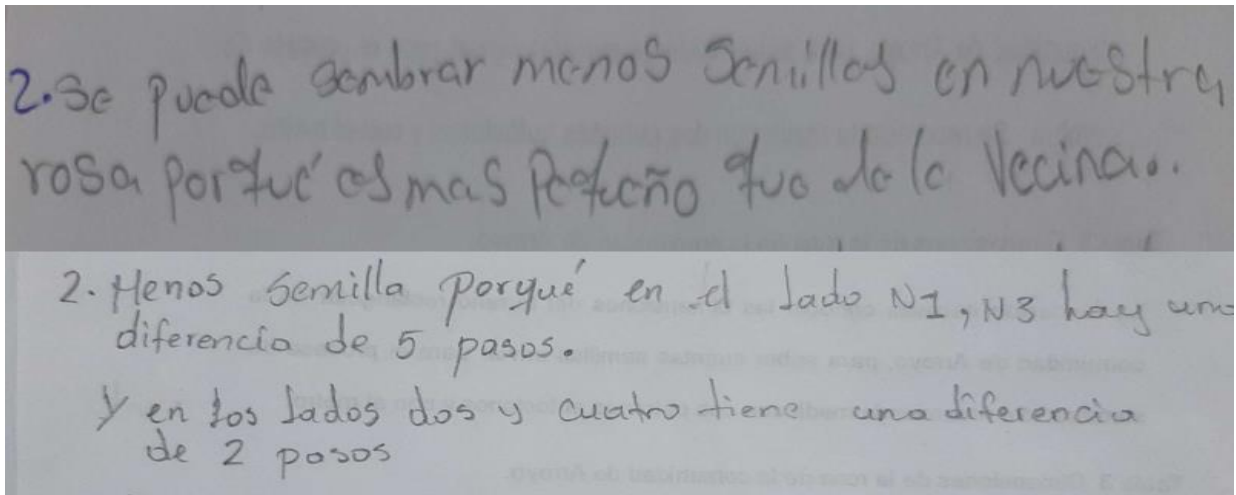 2. Se puede sembrar menos semillas en nuestra
rosa porqué es mas pequeño que de la vecina..
2. Menos semilla porqué en el lado N1, N3 hay una
diferencia de 5 pasos.
y en los lados dos y cuatro tiene una diferencia
de 2 pasos